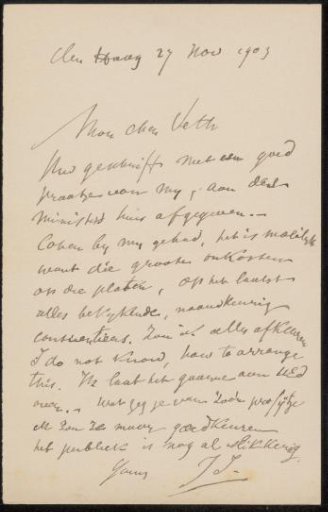 den Haag 27 Nov 1903
Mon cher Veth
Uw geschrift met een goed
praatje van my, aan den
minister huis afgegeven.
Cohen by my gehad, het is moeilyk
want die groote onkosten
op die platen, op het laatst
alles bekykende, naauwkeurig
consciëntieus. Zou ik alles afkeuren
I do not know, how to arrange
this. Ik laat het gaarne aan UEd
over. wat zeg je van zoo'n proefje
ik zou ze maar goedkeuren
het publiek is nog al
Yours J. I.